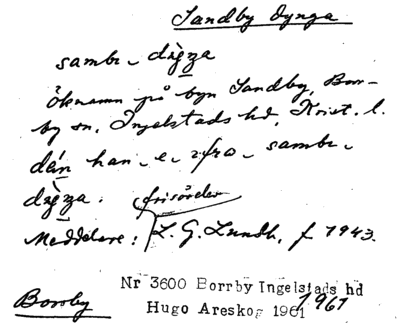 Sandby dynga
sambι- dỳŋa
öknamn på byn Sandby, Bor-
by sn, Ingelstads hd, Krist. l.
dén han e ifrå sambι-
dỳŋa. frisörder
Meddelare: L. G. Lundh, f 1943.
Nr 3600 Borrby Ingelstads hd
Borrby Hugo Areskog 1961 1961